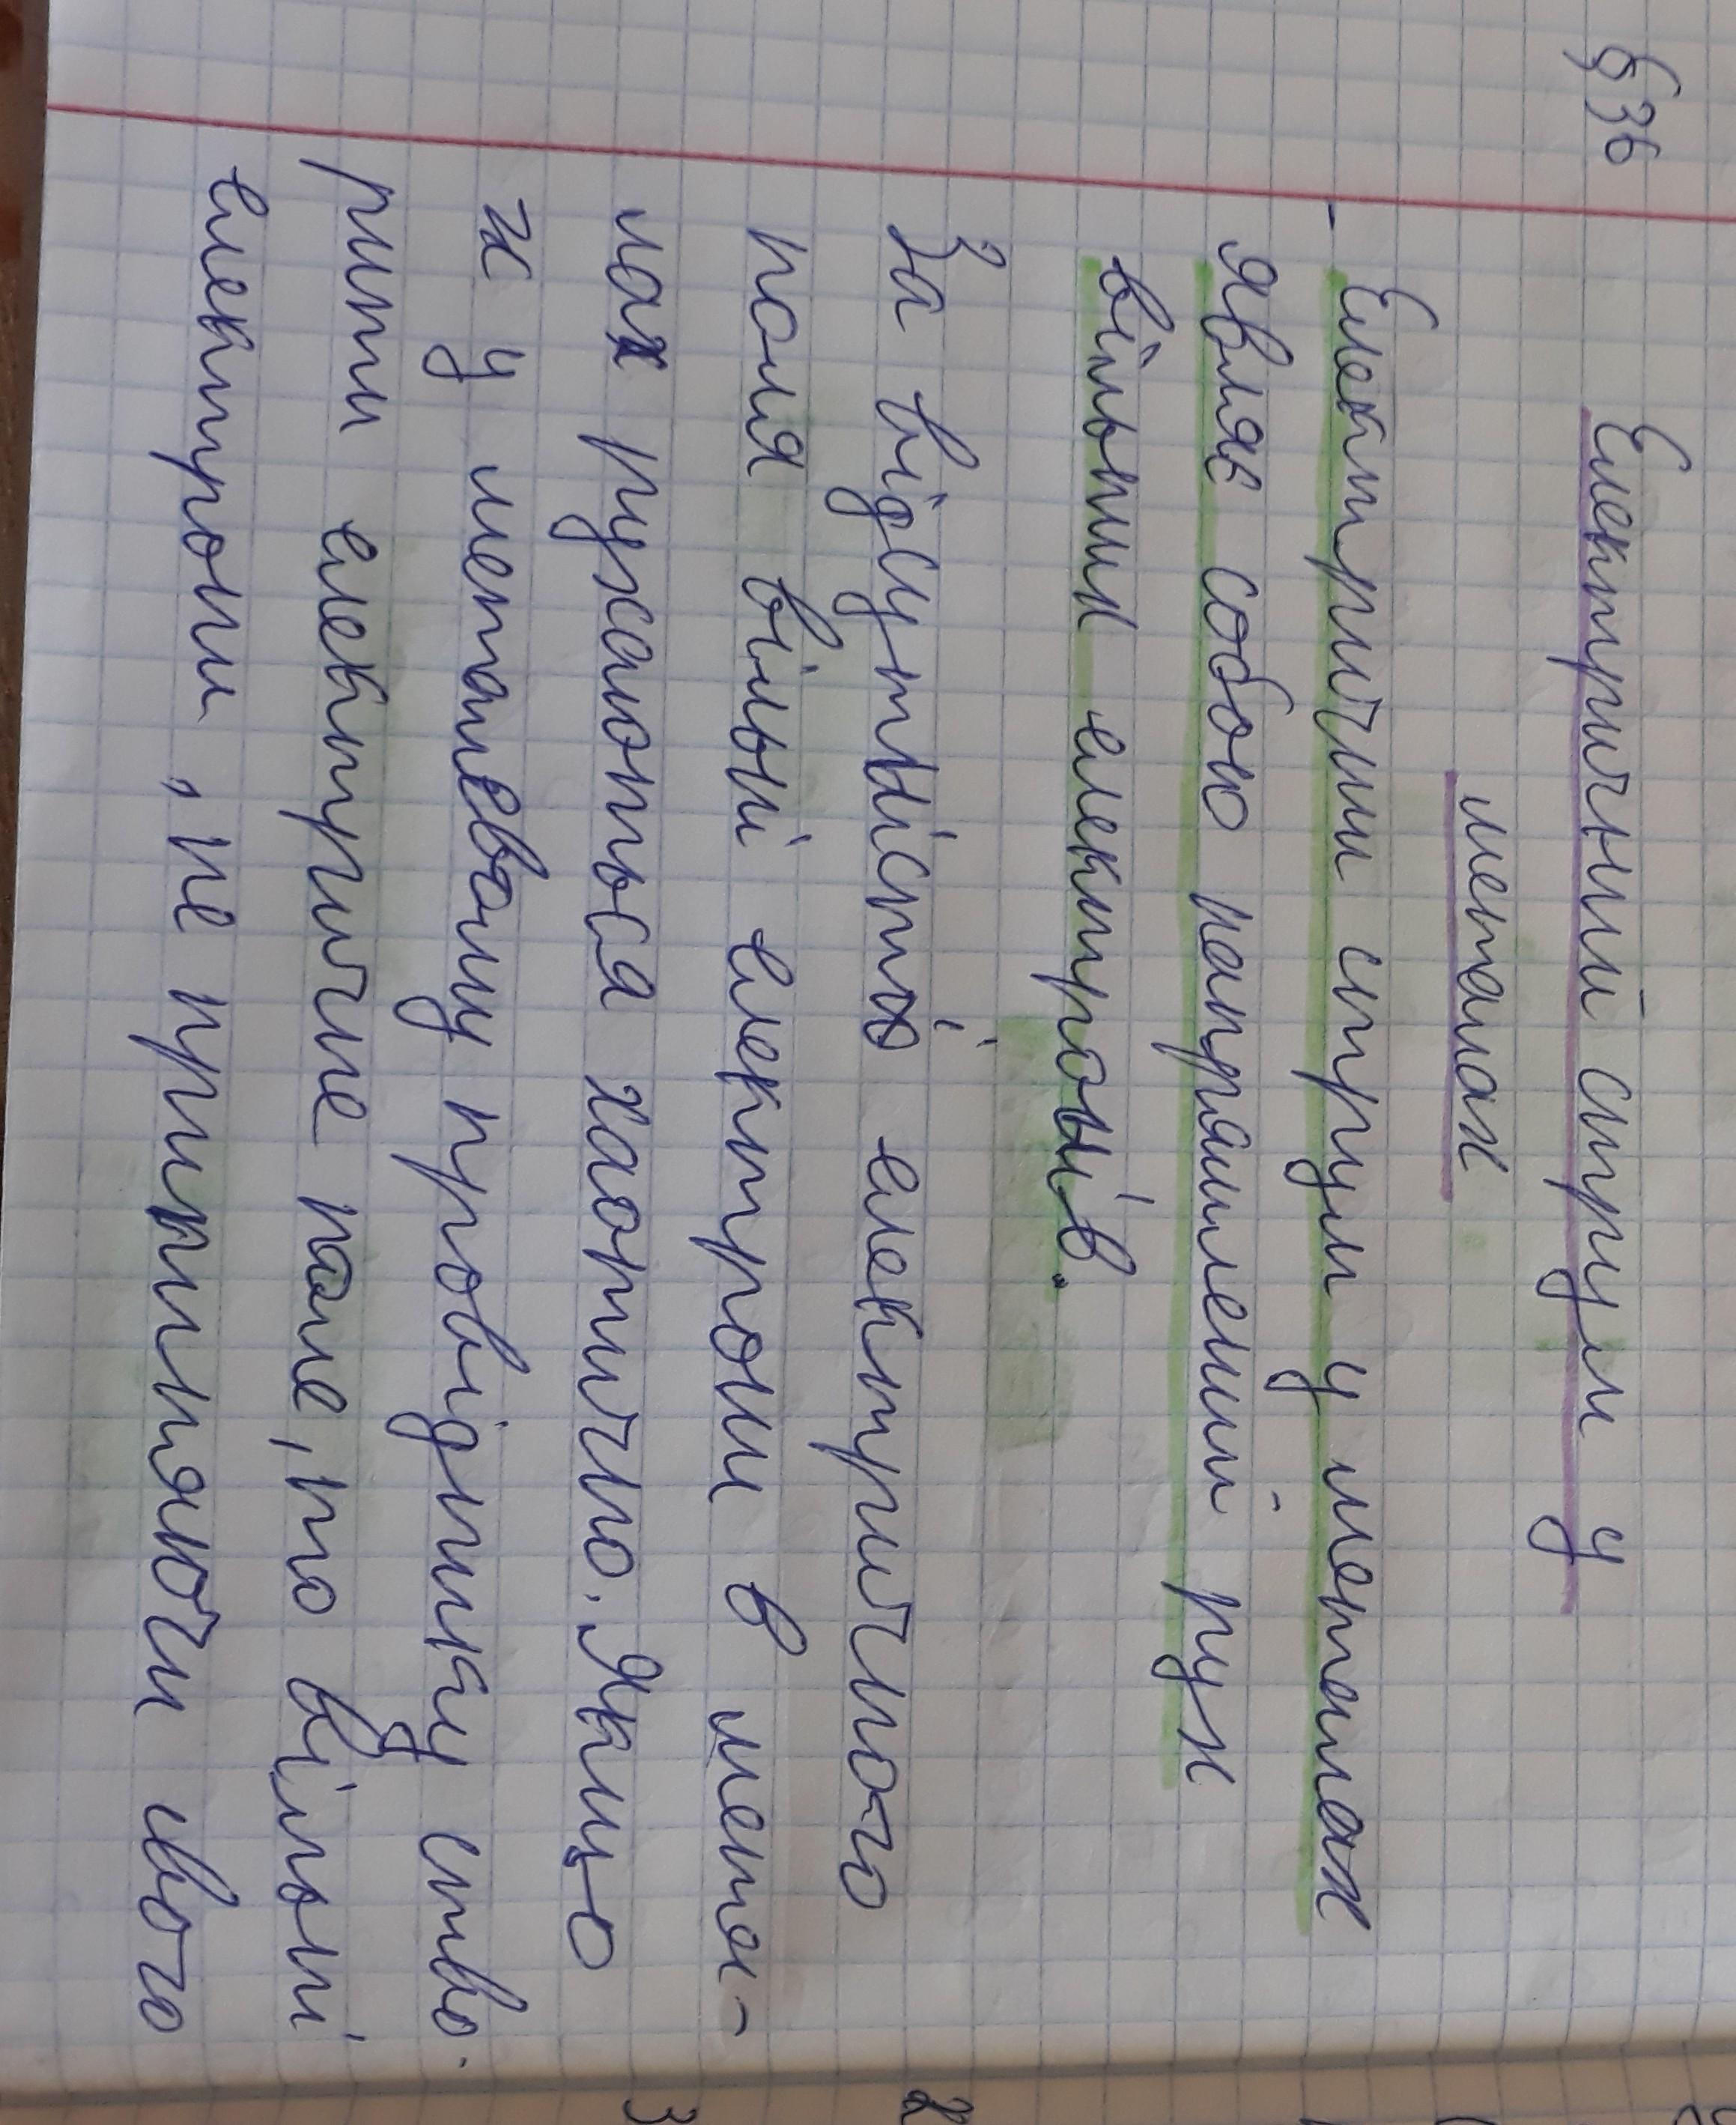 § 36
Електричний струм у
металах
- Електричним струм у металах
являє собою напрямлений рух
вільних електронів.
За відсутністю електричного
поля вільні електрони в мета-
лах рухаються хаотично. Якщо
ж у металевому провіднику ство-
рити електричне поле, то вільні
електрони, не припиняючи свого
2
3